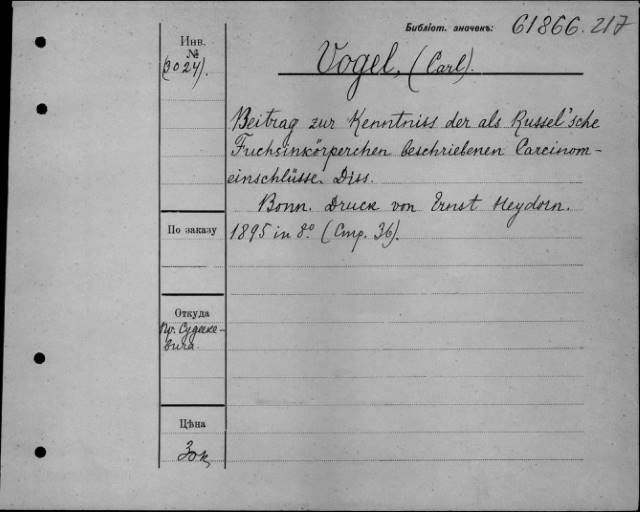 Библіот. значекъ: 61866.217
Инв.
№
(3024).
Vogel, (Carl).
Beitrag zur Kenntniss der als Russel'sche
Fuchsinkörperchen beschriebenen Carcinom-
einschlüsse. Diss.
Bonn. Druck von Ernst Heydorn.
1895 in 8° (Стр. 36).
По заказу
Откуда
Пр. Судаке-
вича
Цѣна
30к